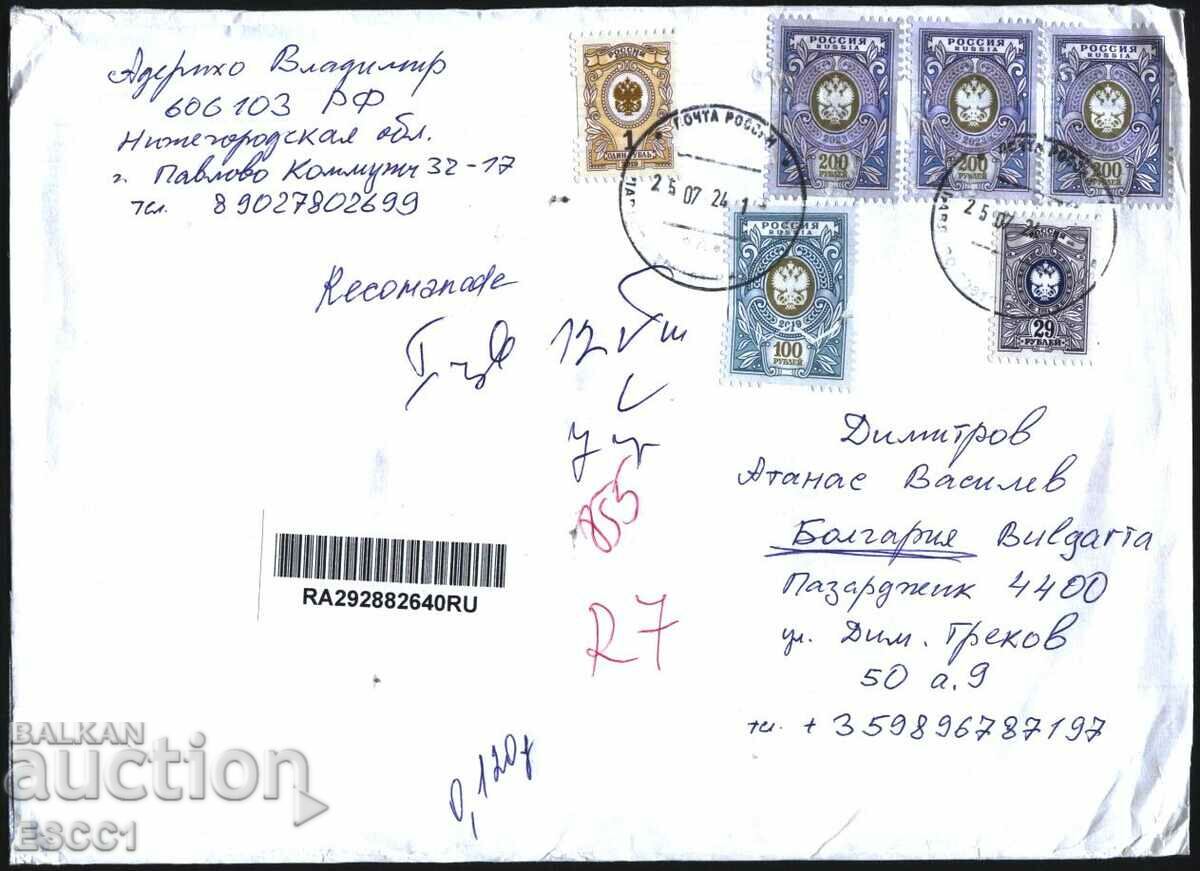 Адерихо Владимир
606103 РФ
Нижегородская обл.
г. Павлово Коммунч 32-17
тел. 89027802699
РОССИЯ
1
ОДИН РУБЛЬ
2019
РОССИЯ
RUSSIA
2023
200
РУБЛЕЙ
РОССИЯ
RUSSIA
2023
200
РУБЛЕЙ
РОССИЯ
RUSSIA
2023
200
РУБЛЕЙ
ПОЧТА РОССИИ
25 07 24 1
ПОЧТА РОССИИ
25 07 24
РОССИЯ
RUSSIA
2019
100
РУБЛЕЙ
РОССИЯ
29
РУБЛЕЙ
Recomande
12
855
R7
RA292882640RU
Димитров
Атанас Василев
Болгария Bulgaria
Пазарджик 4400
ул. Дим. Греков
50 а.9
тел. +359896787197
0,120
BALKAN
auction
ESCC1